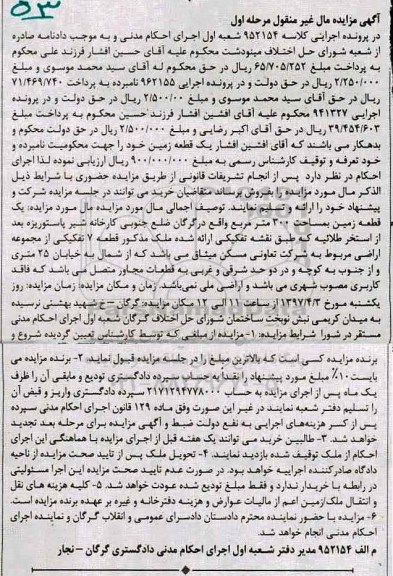 ۵۳
آگهی مزایده مال غیر منقول مرحله اول
در پرونده اجرایی کلاسه ۹۵۲۱۵۴ شعبه اول اجرای احکام مدنی و به موجب دادنامه صادره
از شعبه شورای حل اختلاف مینودشت محکوم علیه آقای حسین افشار فرزند علی محکوم
به پرداخت مبلغ ۶۵/۷۰۵/۲۵۲ ریال در حق محکوم له آقای سید محمد موسوی و مبلغ
۲/۲۵۰/۰۰۰ ریال در حق دولت و در پرونده اجرایی ۹۶۲۱۵۵ نامبرده به پرداخت ۷۱/۴۶۹/۷۴۰
ریال در حق آقای سید محمد موسوی و مبلغ ۲/۵۰۰/۰۰ ریال در حق دولت و در پرونده
اجرایی ۹۴۱۳۲۷ محکوم علیه آقای افشین افشار فرزند حسین محکوم به پرداخت مبلغ
۳۹/۴۵۴/۶۰۳ ریال در حق آقای اکبر رضایی و مبلغ ۲/۵۰۰/۰۰۰ ریال در حق دولت محکوم و
بدهکار می باشند که آقای افشین افشار یک قطعه زمین خود را جهت محکومیت نامبرده و
خود تعرفه و توقیف کارشناس رسمی به مبلغ ۹۰۰/۰۰۰/۰۰۰ ریال ارزیابی نموده لذا اجرای
احکام در نظر دارد پس از انجام تشریفات قانونی از طریق مزایده حضوری با شرایط ذیل
الذکر مال مورد مزایده را بفروش برساند متقاضیان خرید می توانند در جلسه مزایده شرکت و
پیشنهاد خود را ارائه و اعلام نمایند. توصیف اجمالی مال مورد مزایده مال مورد مزایده: یک
قطعه زمین بمساحت ۳۰۰ متر مربع واقع در گرگان ضلع جنوبی کارخانه شیر پاستوریزه بعد
از استخر طلائیه که طبق نقشه تفکیکی ارائه شده ملک مذکور قطعه ۲ تفکیکی از مجموعه
اراضی مربوط به شرکت تعاونی مسکن میثاق می باشد که از شمال به خیابان ۲۵ متری
و از جنوب به کوچه و در دو حد شرقی و غربی به قطعات مجاور متصل می باشد که فاقد
کاربری مصوب شهری می باشد و اراضی ملی نمی‌باشد. زمان و مکان مزایده: زمان مزایده: روز
یکشنبه مورخ ۱۳۹۷/۴/۳ از ساعت ۱۱ الی ۱۲ مکان مزایده: گرگان – خ شهید بهشتی نرسیده
به میدان کریمی نبش نوبخت ساختمان شورای حل اختلاف گرگان شعبه اول اجرای احکام مدنی
مستقر در شورا شرایط مزایده: ۱- مزایده از مبلغی که توسط کارشناس تعیین گردیده شروع و
برنده مزایده کسی است که بالاترین مبلغ را در جلسه مزایده قبول نماید. ۲- برنده مزایده می
بایست ۱۰٪ مبلغ مورد پیشنهاد را نقدا به حساب سپرده دادگستری تودیع و مابقی آن را ظرف
یک ماه پس از اجرای مزایده به حساب ۲۱۷۱۲۹۴۷۷۸۰۰۰ سپرده دادگستری واریز و قبض آن
را تسلیم دفتر شعبه نمایند در غیر این صورت وفق ماده ۱۲۹ قانون اجرای احکام مدنی سپرده
پس از کسر هزینه‌های اجرایی به نفع دولت ضبط و آگهی مزایده برای مرحله بعد تجدید
خواهد شد. ۳- طالبین خرید می توانند یک هفته قبل از اجرای مزایده با هماهنگی این اجرای
احکام از ملک توقیف شده بازدید نمایند. ۴- تحویل ملک پس از تایید صحت مزایده از ناحیه
دادگاه صادرکننده اجراییه خواهد بود. در صورت عدم تایید صحت مزایده این اجرا مسئولیتی
در رابطه با خریدار ندارد و فقط مبلغ تودیع شده عودت خواهد شد. ۵- کلیه هزینه های نقل
و انتقال ملک/زمین اعم از مالیات عوارض و هزینه دفترخانه و غیره بر عهده برنده مزایده است.
۶- مزایده با حضور نماینده محترم دادستان دادسرای عمومی و انقلاب گرگان و نماینده اجرای
احکام مدنی انجام خواهد شد.
م الف ۹۵۲۱۵۴ مدیر دفتر شعبه اول اجرای احکام مدنی دادگستری گرگان – نجار